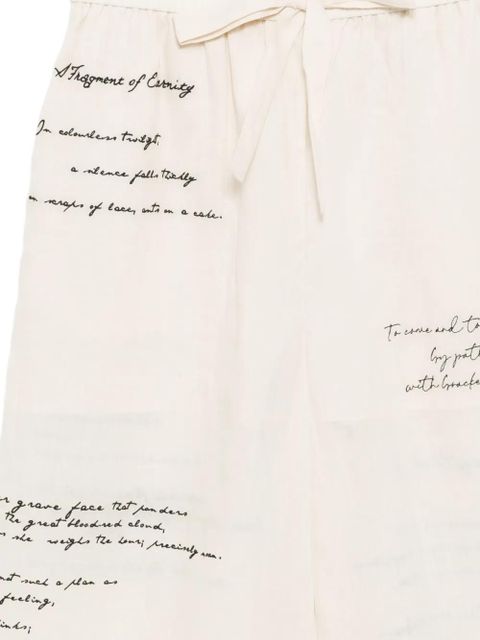 A Fragment of Eternity
In colourless twilight,
a silence falls thickly
on scraps of lace, ants on a cake.
To come and to
by path
with bracke
or grave face that ponders
the great bloodred cloud,
as she weighs the hour; precisely even.
not such a plan as
feeling,
inks;